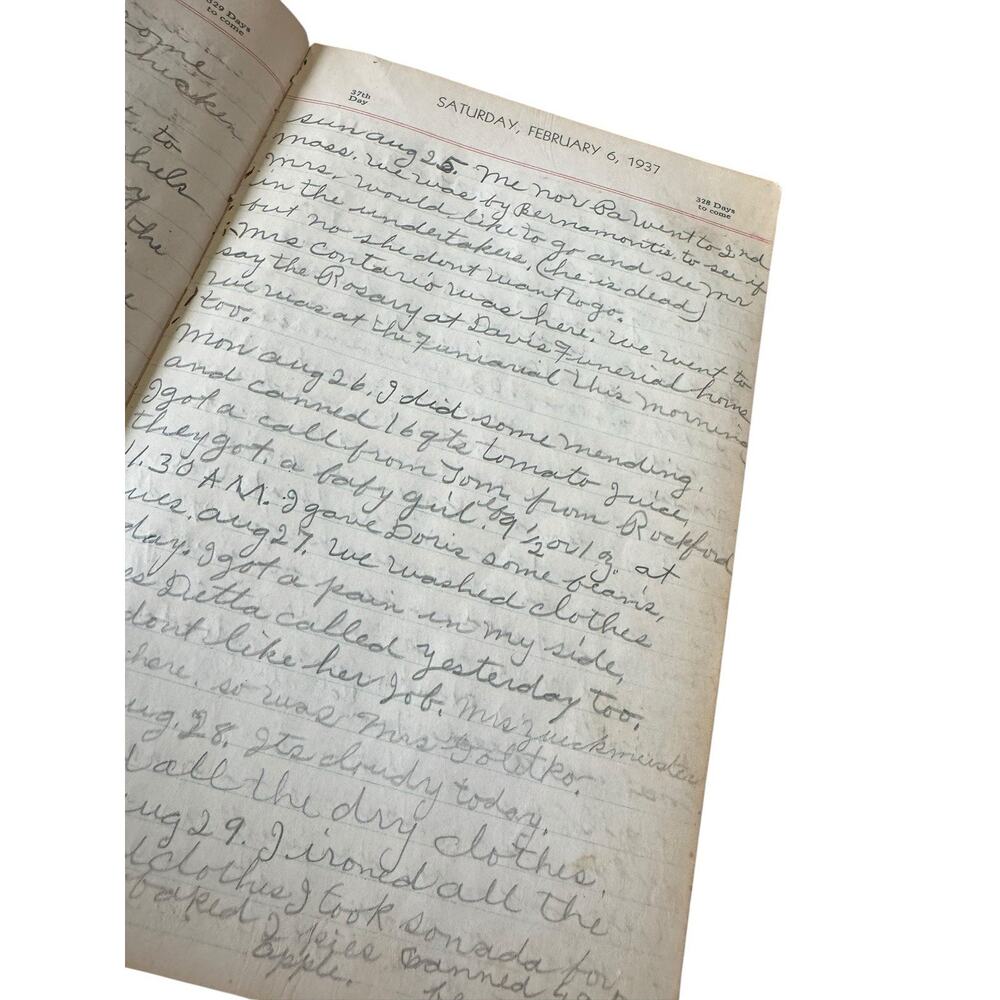 329 Days
to come
some
chicken
to
the
37th
Day
SATURDAY, FEBRUARY 6, 1937
328 Days
to come
sun aug 25. Me nor Pa went to 2nd
mass. we was by Bernamontis, to see if
Mrs. would like to go and see mr
in the undertakers, (he is dead)
but no she dont want to go.
Mrs Contario was here, we went to
say the Rosary at Davis Funerial home
we was at the Funiarial this morning
too.
Mon aug 26. I did some mending,
and canned 16 qts tomato juice,
I got a call from Tom, from Rockford
they got, a baby girl. 9 lbs, 1/2 oz. at
11.30 A.M. I gave Doris some beans,
ues. aug 27, we washed clothes
day. I got a pain in my side,
es Detta called yesterday too,
dont like her job. Mrs Zuickmuister
here, so was Mrs Golitko.
ug. 28. Its cloudy today.
all the dry clothes.
ug 29. I ironed all the
clothes, I took sonada for
baked 2 pies canned
apple.